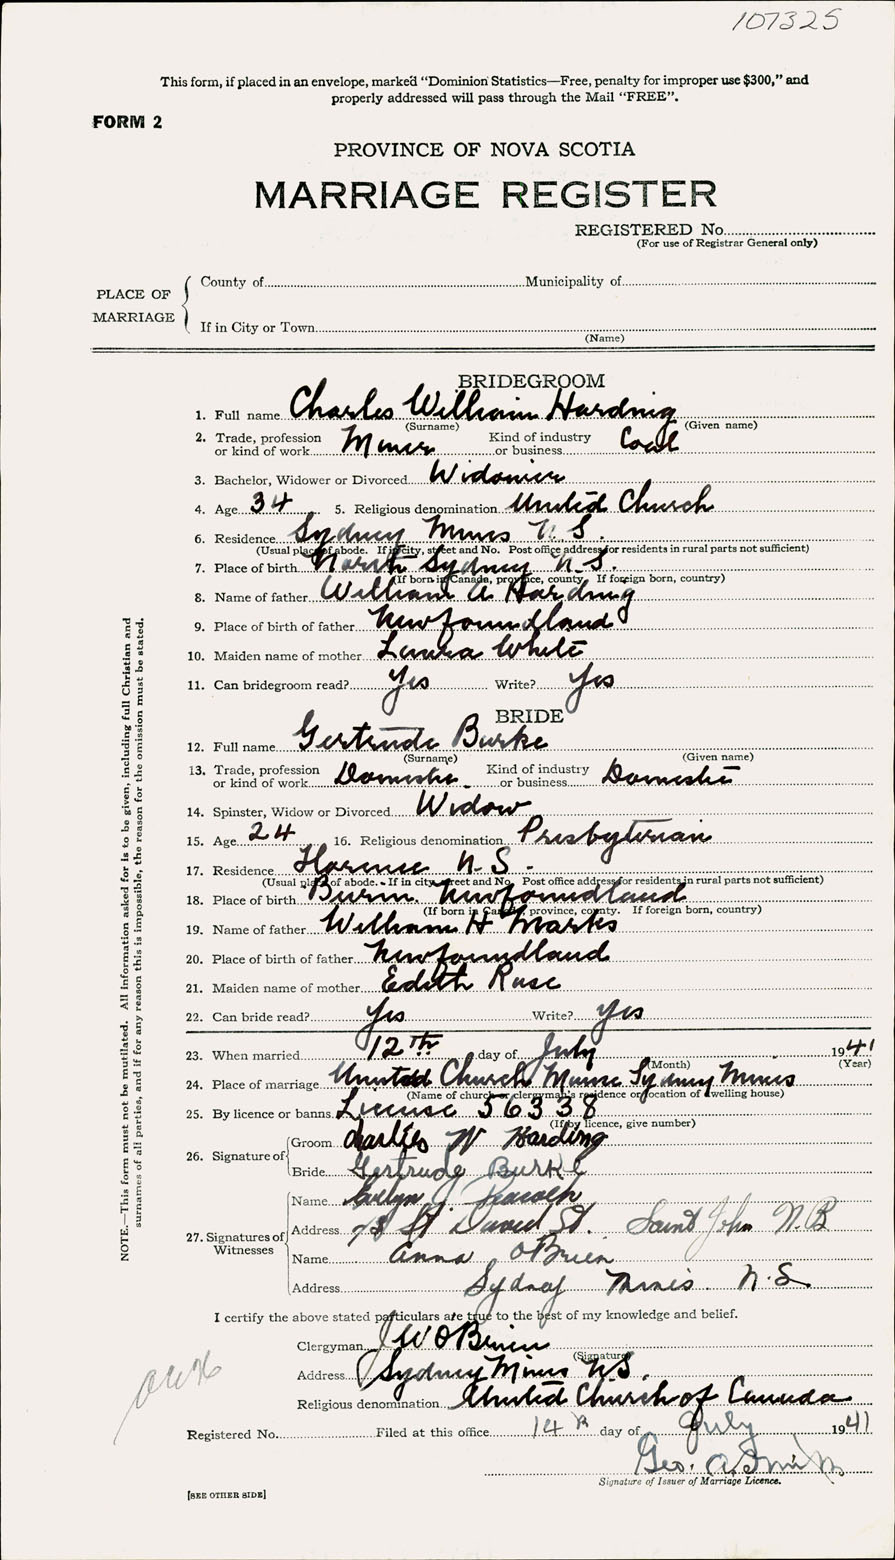 107325
This form, if placed in an envelope, marked “Dominion Statistics—Free, penalty for improper use $300,” and
properly addressed will pass through the Mail “FREE”.
FORM 2
PROVINCE OF NOVA SCOTIA
MARRIAGE REGISTER
REGISTERED No.
(For use of Registrar General only)
PLACE OF MARRIAGE
County of Municipality of
If in City or Town
(Name)
BRIDEGROOM
1. Full name Charles William Harding
(Surname) (Given name)
2. Trade, profession or kind of work Miner Kind of industry or business Coal
3. Bachelor, Widower or Divorced Widower
4. Age 34 5. Religious denomination United Church
6. Residence Sydney Mines N.S.
(Usual place of abode. If in city, street and No. Post office address for residents in rural parts not sufficient)
7. Place of birth North Sydney N.S.
(If born in Canada, province, county. If foreign born, country)
8. Name of father William A Harding
9. Place of birth of father Newfoundland
10. Maiden name of mother White
11. Can bridegroom read? Yes Write? Yes
BRIDE
12. Full name Gertrude Burke
(Surname) (Given name)
13. Trade, profession or kind of work Domestic Kind of industry or business Domestic
14. Spinster, Widow or Divorced Widow
15. Age 24 16. Religious denomination Presbyterian
17. Residence Florence N.S.
(Usual place of abode. If in city, street and No. Post office address for residents in rural parts not sufficient)
18. Place of birth Burin Newfoundland
(If born in Canada, province, county. If foreign born, country)
19. Name of father William H Marks
20. Place of birth of father Newfoundland
21. Maiden name of mother Edith Rose
22. Can bride read? Yes Write? Yes
23. When married 12th day of July 1941
(Month) (Year)
24. Place of marriage United Church Manse Sydney Mines
(Name of church or clergyman's residence or location of dwelling house)
25. By licence or banns License 56338
(If by licence, give number)
26. Signature of Groom Charles W Harding
Bride Gertrude Burke
27. Signatures of Witnesses
Name Evelyn
Address 78 St David St. Saint John N.B
Name Anna OBrien
Address Sydney Mines. N.S.
I certify the above stated particulars are true to the best of my knowledge and belief.
Clergyman J W OBrien
(Signature)
Address Sydney Mines N.S.
Religious denomination United Church of Canada
Registered No. Filed at this office 14th day of July 1941
Geo. A.
Signature of Issuer of Marriage Licence.
[SEE OTHER SIDE]
NOTE.—This form must not be mutilated. All information asked for is to be given, including full Christian and
surnames of all parties, and if for any reason this is impossible, the reason for the omission must be stated.